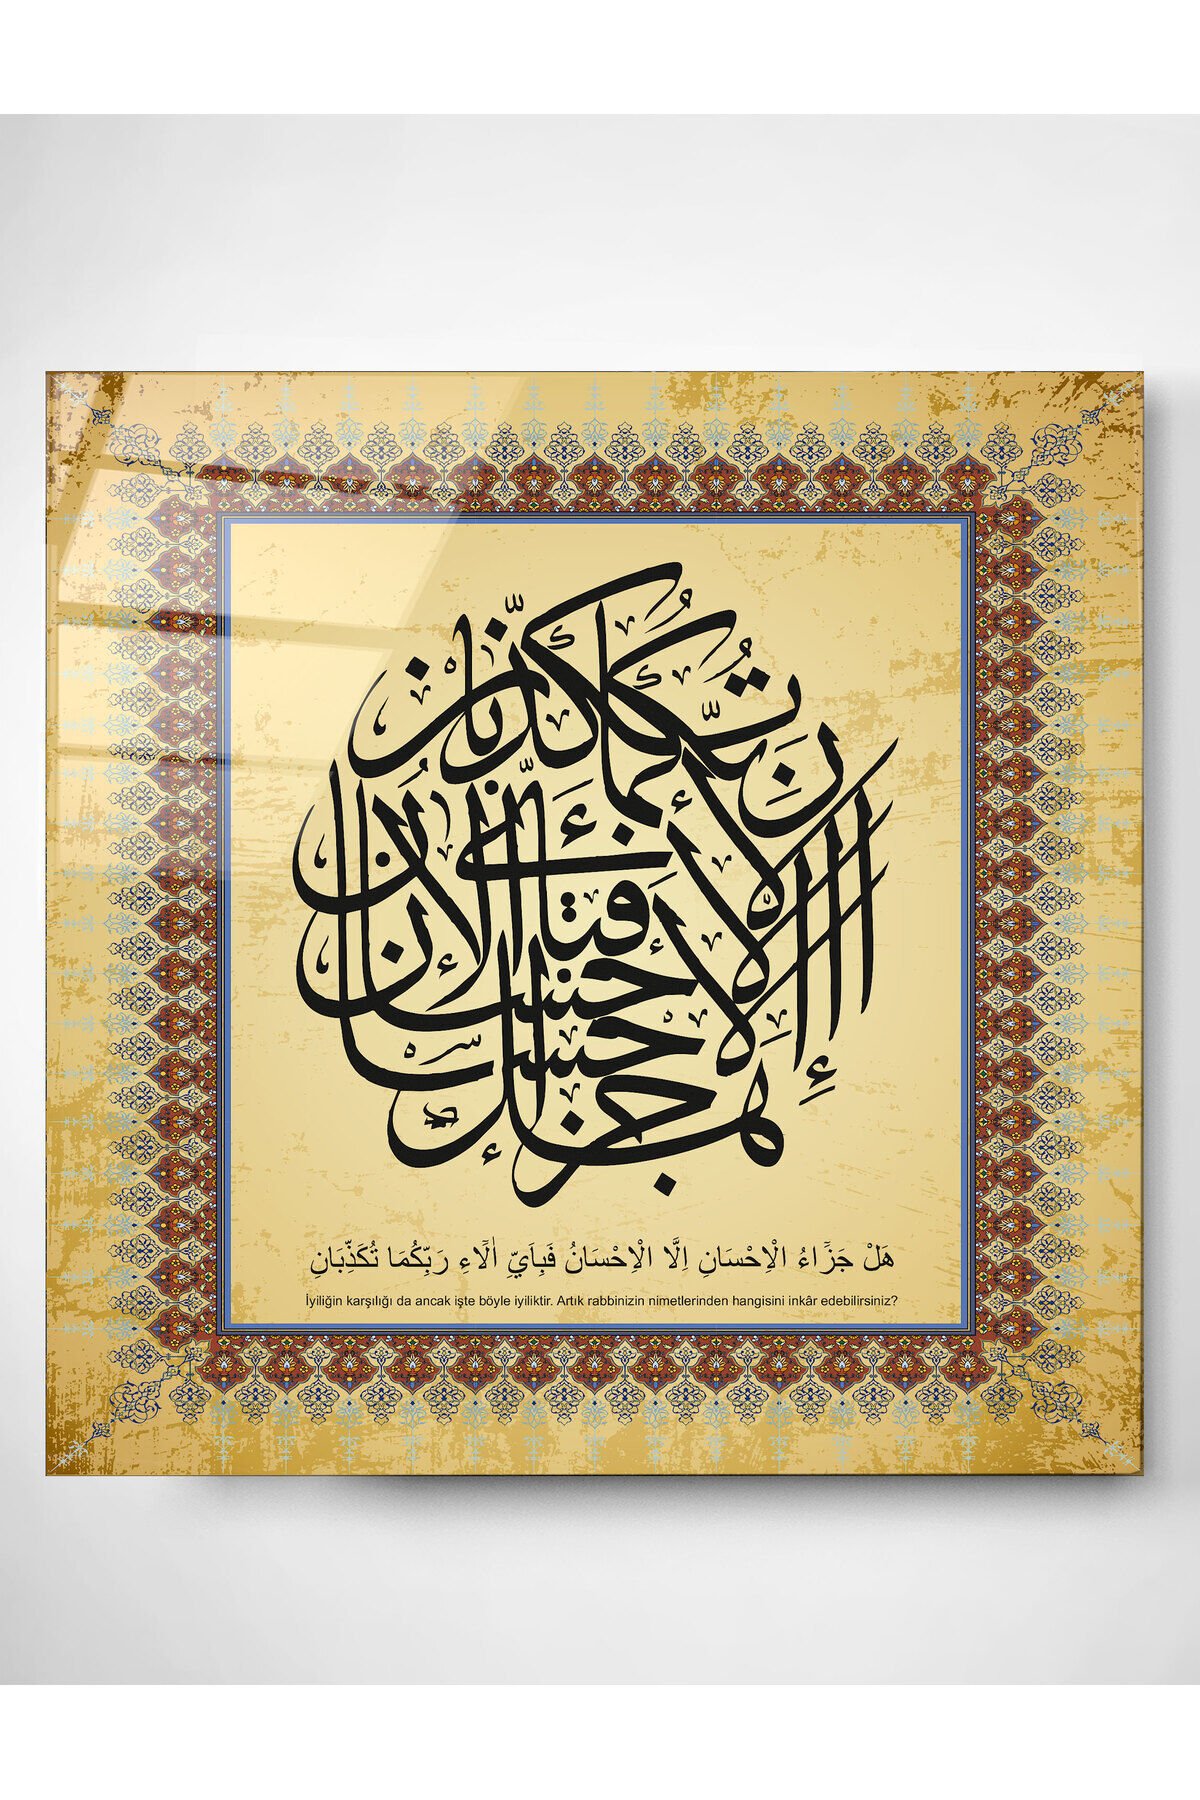 هَلْ جَزَٓاءُ الْاِحْسَانِ اِلَّا الْاِحْسَانُ فَبِاَيِّ اٰلَٓاءِ رَبِّكُمَا تُكَذِّبَانِ
هَلْ جَزَٓاءُ الْاِحْسَانِ اِلَّا الْاِحْسَانُ فَبِاَيِّ اٰلَٓاءِ رَبِّكُمَا تُكَذِّبَانِ
İyiliğin karşılığı da ancak işte böyle iyiliktir. Artık rabbinizin nimetlerinden hangisini inkâr edebilirsiniz?